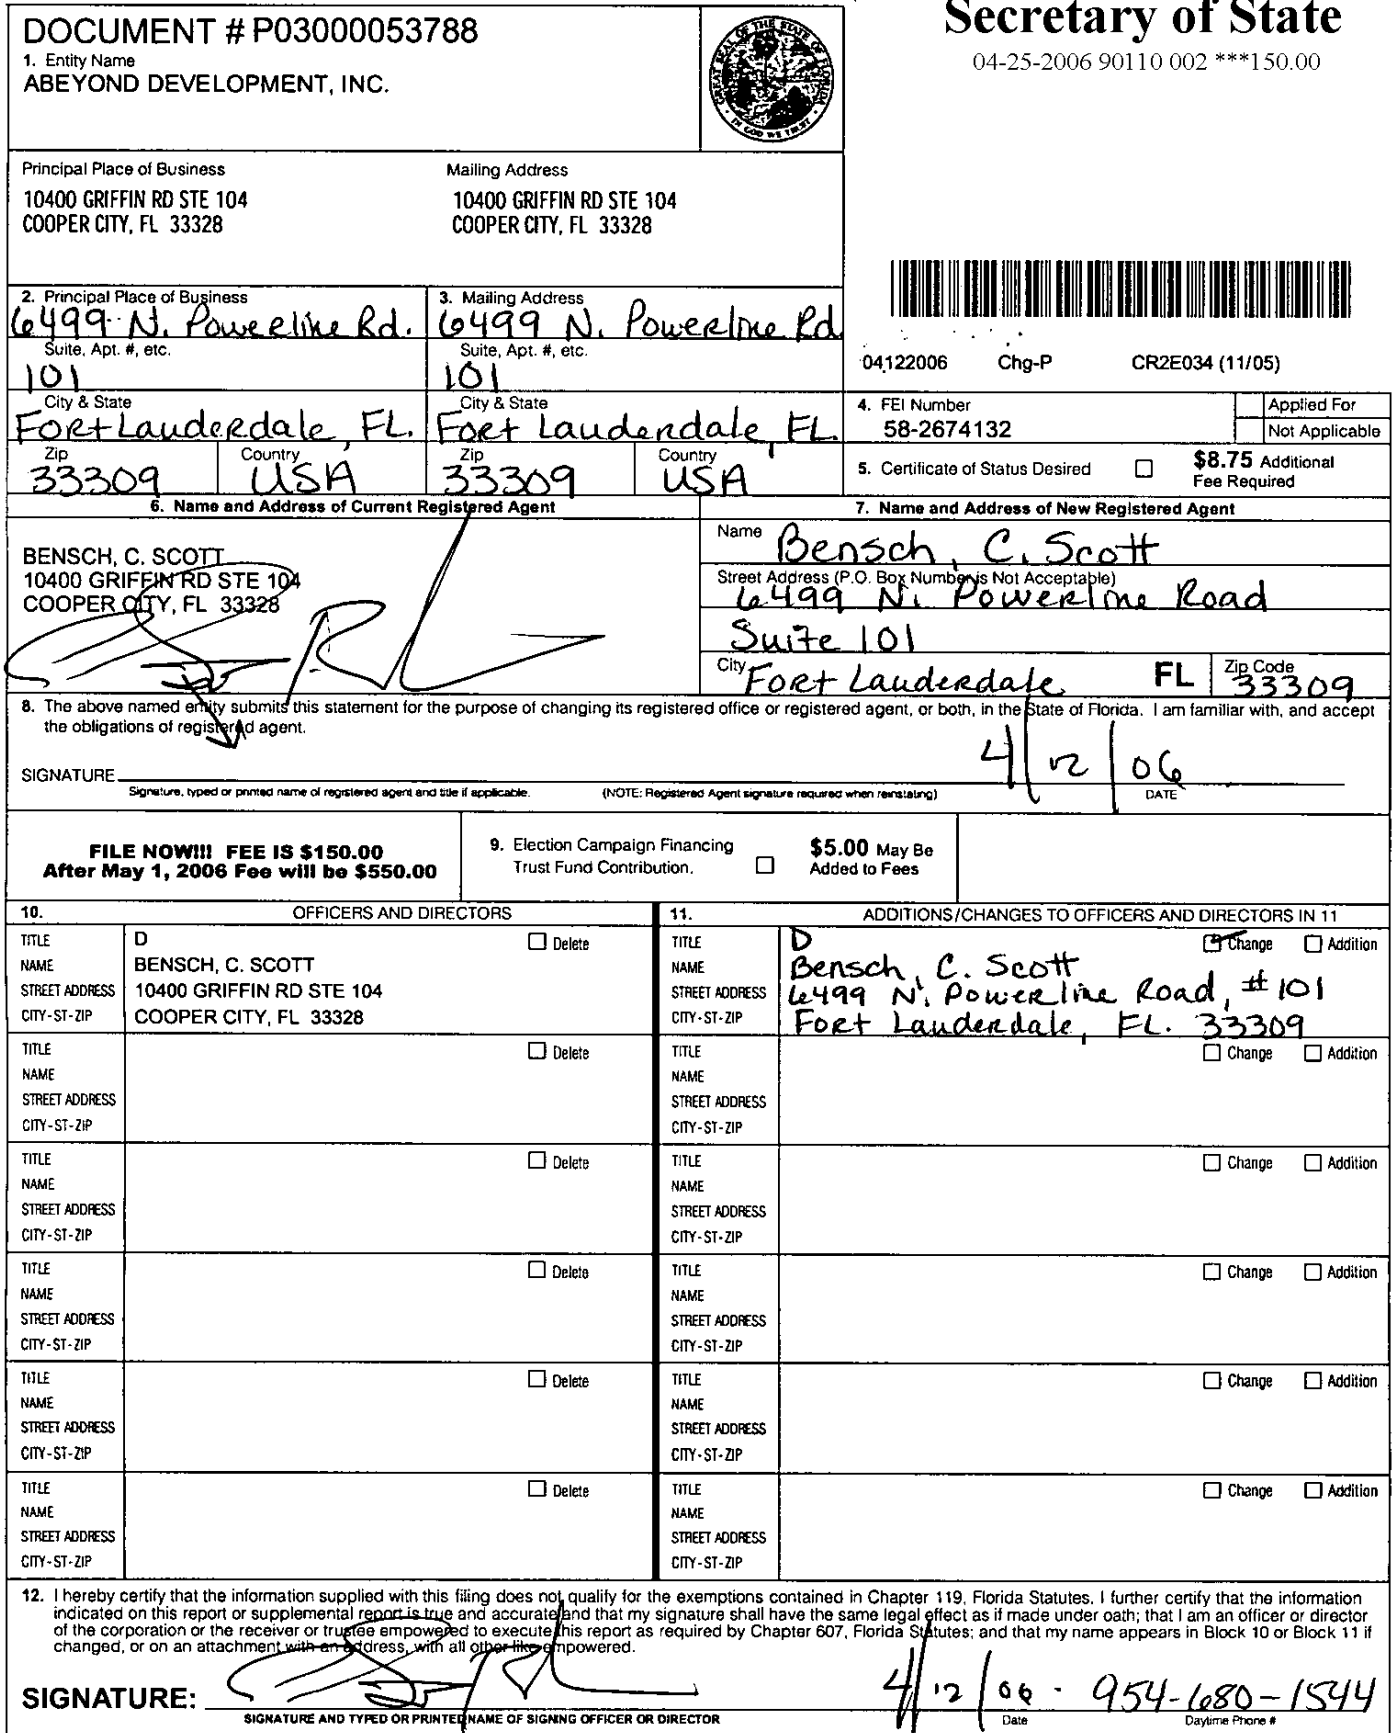 Secretary of State
04-25-2006 90110 002 ***150.00
DOCUMENT # P03000053788
1. Entity Name
ABEYOND DEVELOPMENT, INC.
GREAT SEAL OF THE STATE OF FLORIDA
IN GOD WE TRUST
Principal Place of Business
10400 GRIFFIN RD STE 104
COOPER CITY, FL 33328
Mailing Address
10400 GRIFFIN RD STE 104
COOPER CITY, FL 33328
2. Principal Place of Business
6499 N. Powerline Rd.
Suite, Apt. #, etc.
101
City & State
Fort Lauderdale, FL.
Zip
33309
Country
USA
3. Mailing Address
6499 N. Powerline Rd
Suite, Apt. #, etc.
101
City & State
Fort Lauderdale, FL.
Zip
33309
Country
USA
04122006 Chg-P CR2E034 (11/05)
4. FEI Number
58-2674132
Applied For
Not Applicable
5. Certificate of Status Desired
$8.75 Additional
Fee Required
6. Name and Address of Current Registered Agent
BENSCH, C. SCOTT
10400 GRIFFIN RD STE 104
COOPER CITY, FL 33328
7. Name and Address of New Registered Agent
Name Bensch, C. Scott
Street Address (P.O. Box Number is Not Acceptable)
6499 N. Powerline Road
Suite 101
City Fort Lauderdale FL Zip Code 33309
8. The above named entity submits this statement for the purpose of changing its registered office or registered agent, or both, in the State of Florida. I am familiar with, and accept
the obligations of registered agent.
SIGNATURE 4/12/06
Signature, typed or printed name of registered agent and title if applicable. (NOTE: Registered Agent signature required when reinstating) DATE
FILE NOW!!! FEE IS $150.00
After May 1, 2006 Fee will be $550.00
9. Election Campaign Financing
Trust Fund Contribution.
$5.00 May Be
Added to Fees
10. OFFICERS AND DIRECTORS
TITLE D Delete
NAME BENSCH, C. SCOTT
STREET ADDRESS 10400 GRIFFIN RD STE 104
CITY-ST-ZIP COOPER CITY, FL 33328
TITLE Delete
NAME
STREET ADDRESS
CITY-ST-ZIP
TITLE Delete
NAME
STREET ADDRESS
CITY-ST-ZIP
TITLE Delete
NAME
STREET ADDRESS
CITY-ST-ZIP
TITLE Delete
NAME
STREET ADDRESS
CITY-ST-ZIP
TITLE Delete
NAME
STREET ADDRESS
CITY-ST-ZIP
11. ADDITIONS/CHANGES TO OFFICERS AND DIRECTORS IN 11
TITLE D Change Addition
NAME Bensch, C. Scott
STREET ADDRESS 6499 N. Powerline Road, #101
CITY-ST-ZIP Fort Lauderdale, FL. 33309
TITLE Change Addition
NAME
STREET ADDRESS
CITY-ST-ZIP
TITLE Change Addition
NAME
STREET ADDRESS
CITY-ST-ZIP
TITLE Change Addition
NAME
STREET ADDRESS
CITY-ST-ZIP
TITLE Change Addition
NAME
STREET ADDRESS
CITY-ST-ZIP
TITLE Change Addition
NAME
STREET ADDRESS
CITY-ST-ZIP
12. I hereby certify that the information supplied with this filing does not qualify for the exemptions contained in Chapter 119, Florida Statutes. I further certify that the information
indicated on this report or supplemental report is true and accurate and that my signature shall have the same legal effect as if made under oath; that I am an officer or director
of the corporation or the receiver or trustee empowered to execute this report as required by Chapter 607, Florida Statutes; and that my name appears in Block 10 or Block 11 if
changed, or on an attachment with an address, with all other like empowered.
SIGNATURE: 4/12/06 954-680-1544
SIGNATURE AND TYPED OR PRINTED NAME OF SIGNING OFFICER OR DIRECTOR Date Daytime Phone #